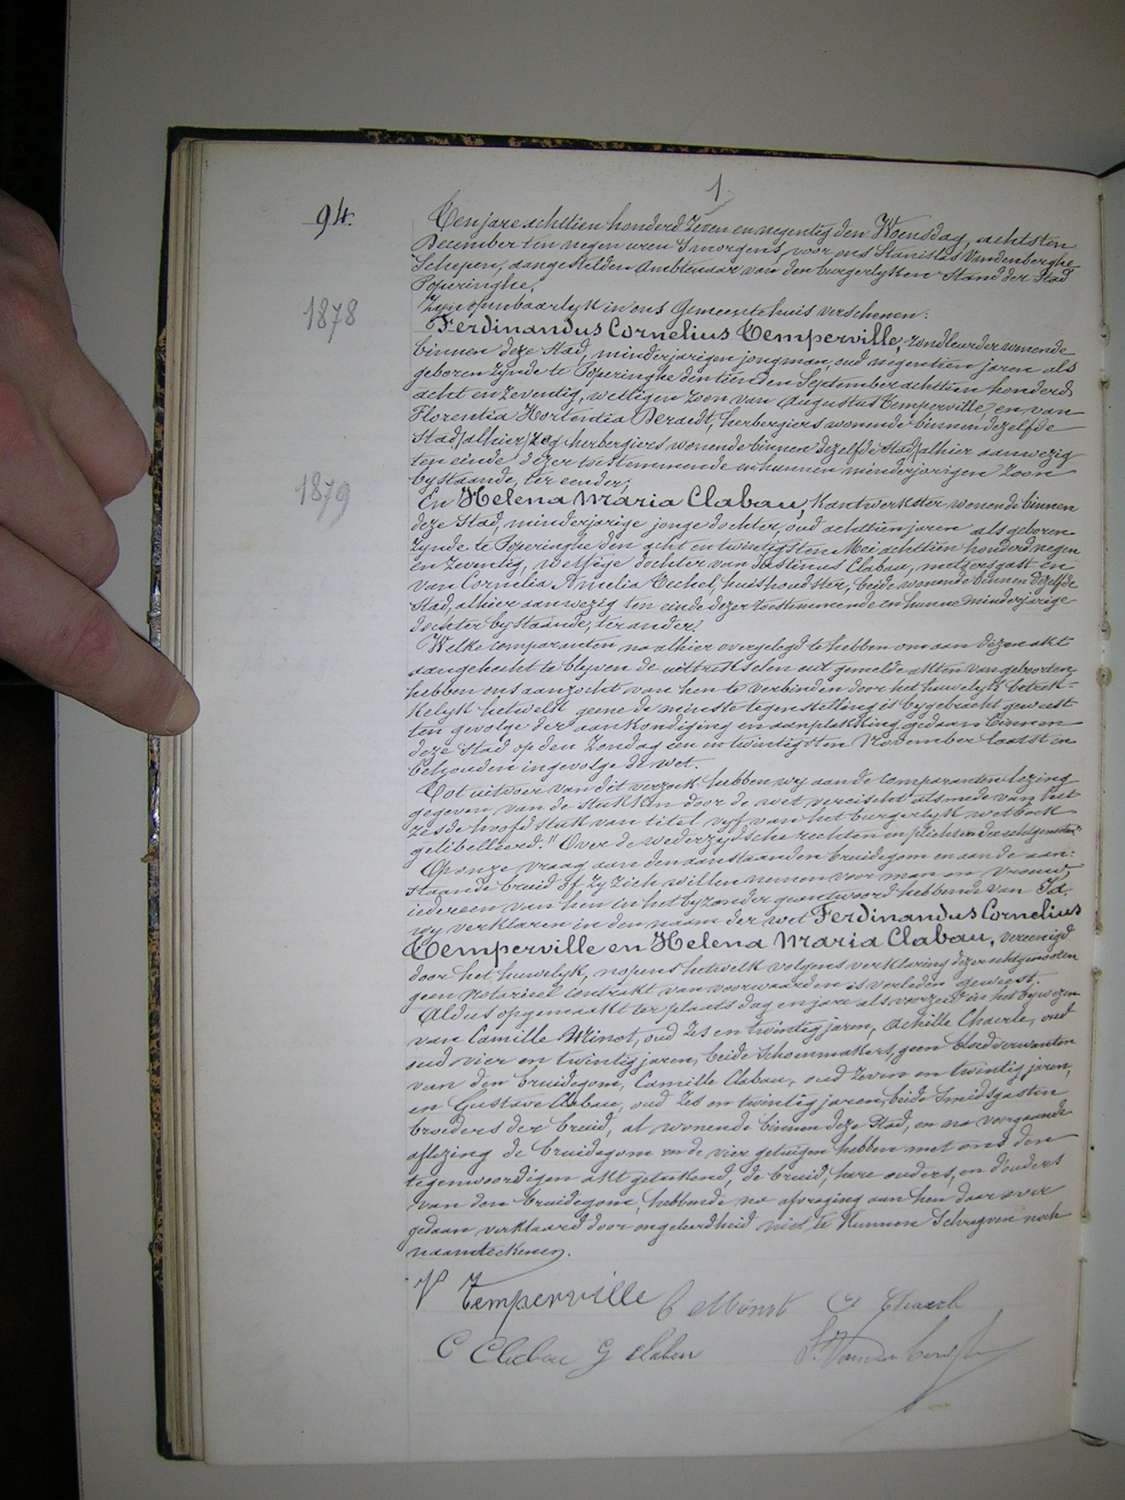 1.
94.
Ten jare achttien honderd zeven en negentig den Woensdag, achtsten
December ten negen uren 's morgens, voor ons Stanislas Vandenberghe
Schepen, aangestelden Ambtenaar van den burgerlyken Stand der Stad
Poperinghe,
Zyn openbaarlyk in ons Gemeentehuis verschenen:
1878
Ferdinandus Cornelius Temperville, wonende
binnen deze Stad, minderjarigen jongman, oud negentien jaren als
geboren zynde te Poperinghe den tienden September achttien honderd
acht en zeventig, wettigen zoon van Augustus Temperville, en van
Florentia Hortentia Deraedt, herbergiers wonende binnen dezelfde
Stad, alhier zeg herbergiers wonende binnen dezelfde stad, alhier aanwezig
ten einde dezer toestemmende en hunnen minderjarigen zoon
bystaande, ter eender;
1879
En Helena Maria Clabau, Kantwerkster, wonende binnen
deze Stad, minderjarige jonge dochter, oud achttien jaren als geboren
zynde te Poperinghe den acht en twintigsten Mei achttien honderd negen
en zeventig, wettige dochter van Justinus Clabau, metsersgast en
van Cornelia Amelia huishoudster, beide wonende binnen dezelfde
Stad, alhier aanwezig ten einde dezer toestemmende en hunne minderjarige
dochter bystaande, ter ander;
Welke comparanten na alhier overgelegd te hebben om aan dezen akt
aangehecht te blyven de uittrekselen uit gemelde akten van geboorten,
hebben ons aanzocht van hen te verbinden door het huwelyk betrek-
kelyk hetwelk geene de minste tegenstelling is bygebracht geweest
ten gevolge der aankondiging en aanplakking gedaan binnen
deze Stad op den Zondag een en twintigsten November laatst en
behouden ingevolge de wet.
Tot uitvoer van dit verzoek hebben wy aan de comparanten lezing
gegeven van de stukken door de wet vereischt alsmede van het
zesde hoofdstuk van titel vyf van het burgerlyk wetboek
getibelleerd: "Over de wederzydsche rechten en plichten der echtgenoten"
Op onze vraag aan den aanstaanden bruidegom en aan de aan-
staande bruid of zy zich willen nemen voor man en vrouw,
iedereen van hen in het byzonder geantwoord hebbende van Ja.
wy verklaren in den naam der wet Ferdinandus Cornelius
Temperville en Helena Maria Clabau, vereenigd
door het huwelyk, nopens hetwelk volgens verklaring dezer echtgenooten
geen Notarieel contrakt van voorwaarden is verleden geweest.
Aldus opgemaakt ter plaats dag en jare als vorzeid in het bywezen
van Camille Minot, oud zes en twintig jaren, Achille Chaerle, oud
oud vier en twintig jaren, beide schoenmakers, geen bloedverwanten
van den bruidegom, Camille Clabau, oud zeven en twintig jaren,
en Gustave Clabau, oud zes en twintig jaren, beide smidsgasten
broeders der bruid, al wonende binnen deze Stad, en na voorgaande
aflezing de bruidegom en de vier getuigen hebben met ons den
tegenwoordigen akt geteekend, de bruid, hare ouders, en d'ouders
van den bruidegom, hebbende na afvraging aan hen daar over
gedaan verklaard door ongeleerdheid niet te kunnen schryven noch
naamteekenen.
Temperville C Minot
C Clabau G Clabau